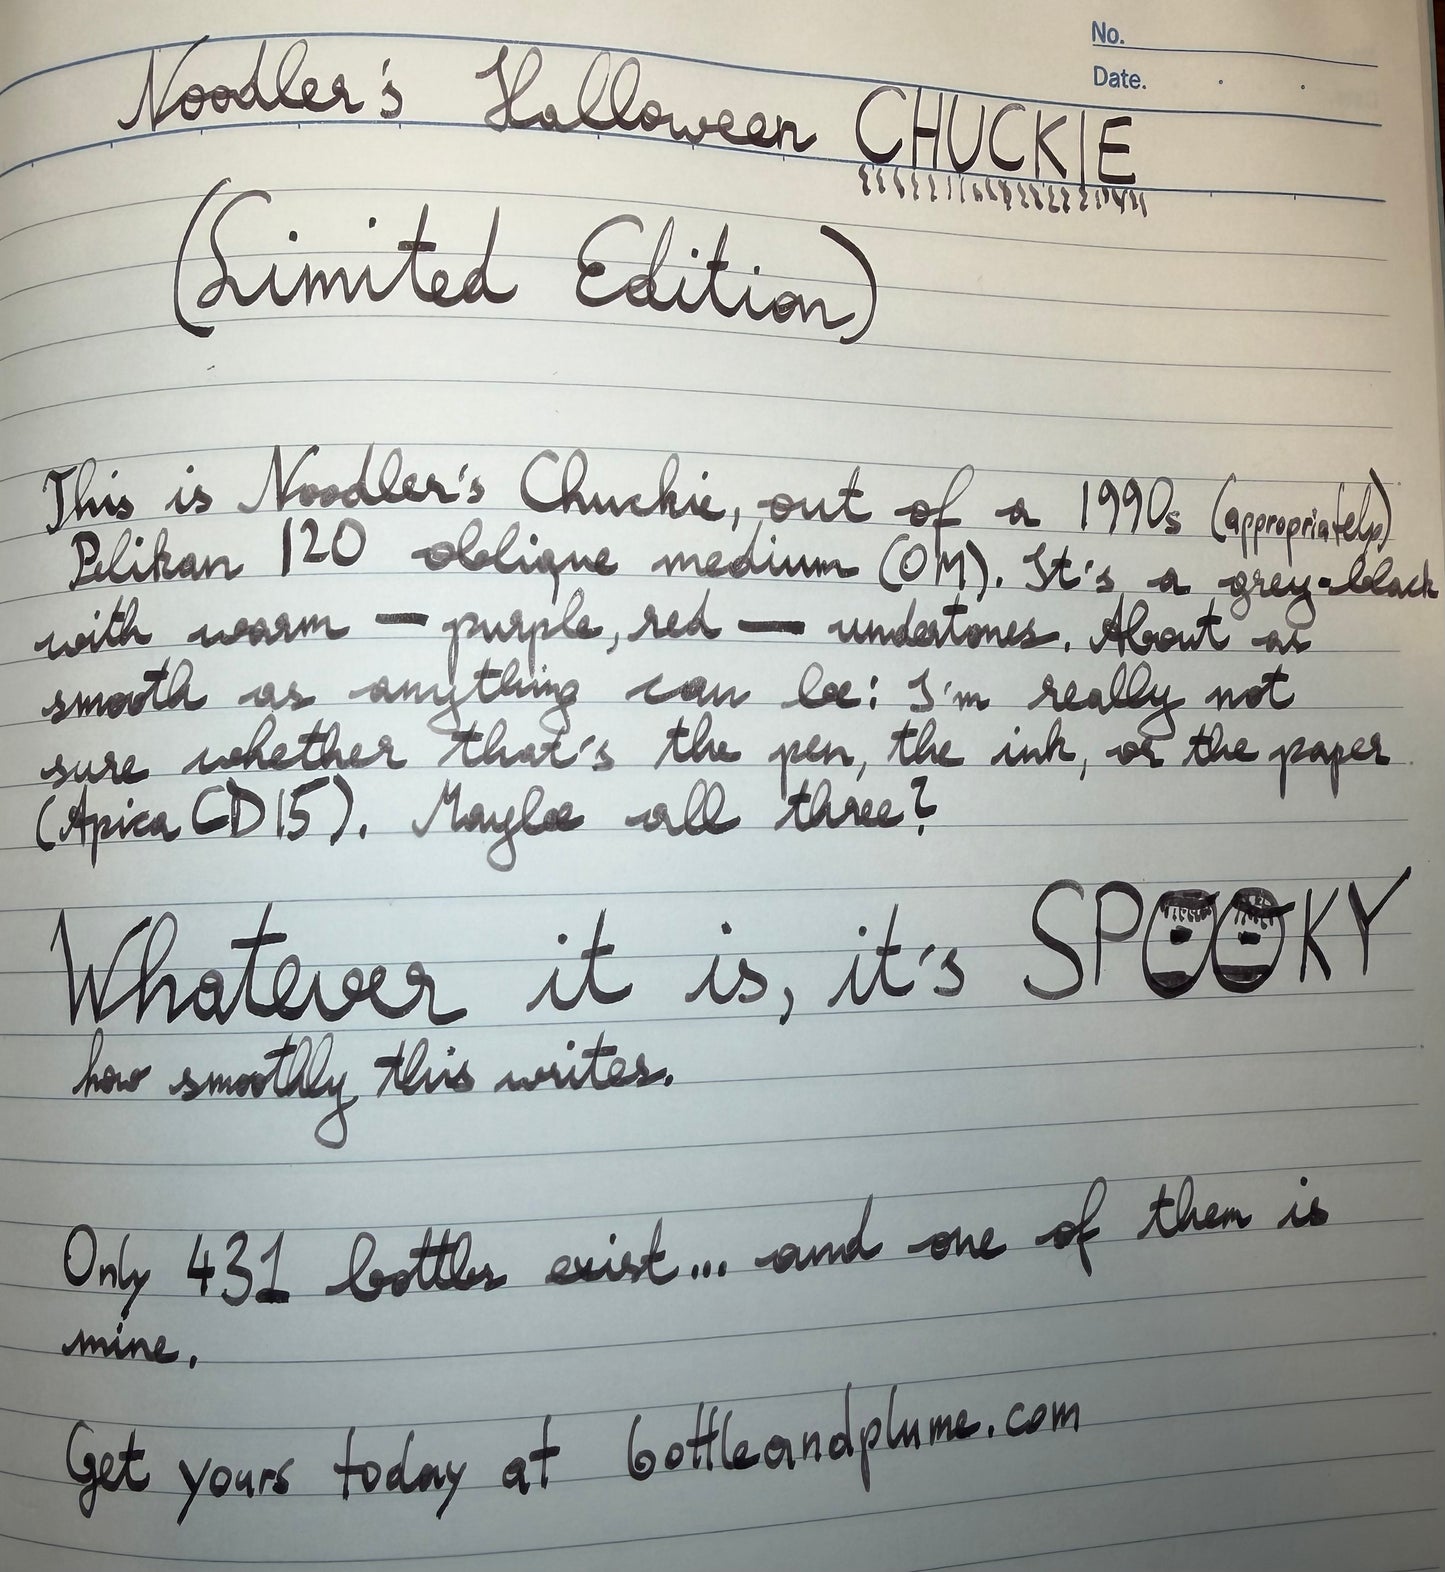 No.
Date.
Noodler's Halloween CHUCKIE
(Limited Edition)
This is Noodler's Chuckie, out of a 1990s (appropriately)
Pelikan 120 oblique medium (OM). It's a grey-black
with warm — purple, red — undertones. About as
smooth as anything can be: I'm really not
sure whether that's the pen, the ink, or the paper
(Apica CD15). Maybe all three?
Whatever it is, it's SPOOKY
how smoothly this writes.
Only 431 bottles exist... and one of them is
mine.
Get yours today at bottleandplume.com